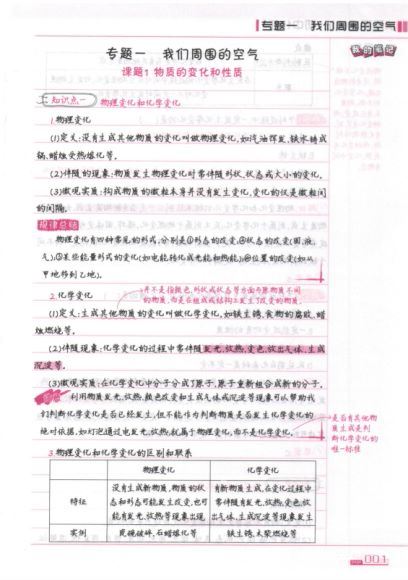 专题一 我们周围的空气
我的笔记
专题一 我们周围的空气
课题1 物质的变化和性质
知识点一 物理变化和化学变化
1.物理变化
(1)定义:没有生成其他物质的变化叫做物理变化,如汽油挥发,铁水铸成
锅,蜡烛受热熔化等。
(2)伴随的现象:物质发生物理变化时常伴随形状,状态或大小的变化。
(3)微观实质:构成物质的微粒本身并没有发生变化,变化的仅是微粒间
的间隔。
规律总结
物理变化有四种常见的形式,分别是①形态的改变;②状态的改变(固,液,
气);③某些能量形式的变化(如电能转化成光能和热能);④位置的改变(如从
甲地移到乙地)。
并不是指颜色,形状或状态等方面与原物质不同
的物质,而是在组成或结构上发生了改变的物质。
2.化学变化
(1)定义:生成其他物质的变化叫做化学变化,如铁生锈,食物的腐败,蜡
烛燃烧等。
(2)伴随现象:化学变化的过程中常伴随发光,放热,变色,放出气体,生成
沉淀等。
(3)微观实质:在化学变化中分子分成了原子,原子重新组合成新的分子。
利用物质发光,放热,颜色改变和生成气体或沉淀等现象可以帮助我
们判断化学变化是否已经发生,但不能作为判断物质是否发生化学变化的
绝对依据,如灯泡通过电发光,放热,就属于物理变化,而不是化学变化。
是否有其他物
质生成是判
断化学变化的
唯一标准
3.物理变化和化学变化的区别和联系
物理变化 化学变化
特征
没有生成新物质,物质的状
态和形态可能发生改变,也可
能有发光,放热等现象出现
有新物质生成,在变化过程中
常伴随有发光,放热,变色,放
出气体,生成沉淀等现象发生
实例 瓷碗破碎,石蜡熔化等 铁生锈,木柴燃烧等
001